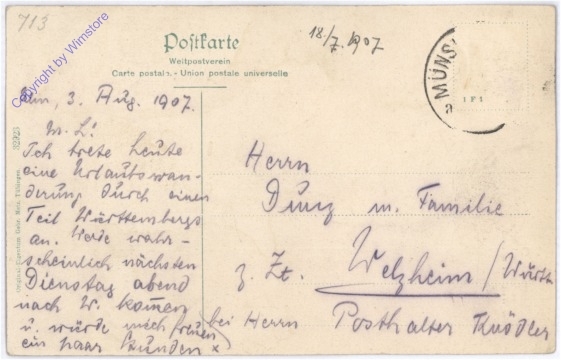 713
18/7. 1907
Postkarte
Weltpostverein
Carte postale. - Union postale universelle
MÜNS
Copyright by Wimstore
Ulm, 3. Aug. 1907.
M. L!
Ich trete heute
eine Urlaubswan-
derung durch einen
Teil Württembergs
an. Werde wahr-
scheinlich nächsten
Dienstag abend
nach W. kommen
u. würde mich freuen
ein paar Stunden
Herrn
m. Familie
z. Zt. Welzheim / Württ
bei Herrn Posthalter Knödler
32923
Original-Eigentum Gebr. Metz, Tübingen.